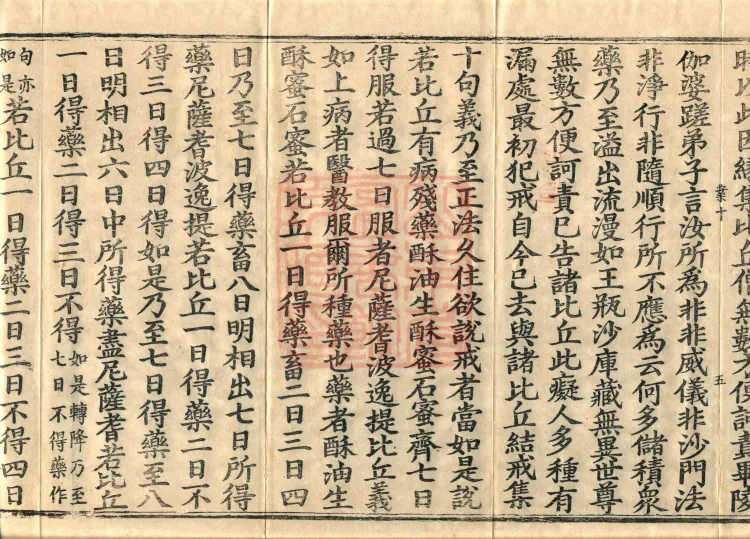 時以此因緣集比丘僧無數方便訶責畢陵
伽婆蹉弟子言汝所爲非非威儀非沙門法
五
非淨行非隨順行所不應爲云何多儲積衆
藥乃至溢出流漫如王瓶沙庫藏無異世尊
無數方便訶責已告諸比丘此癡人多種有
漏處最初犯戒自今已去與諸比丘結戒集
十句義乃至正法久住欲說戒者當如是說
若比丘有病殘藥酥油生酥蜜石蜜齊七日
得服若過七日服者尼薩耆波逸提比丘義
如上病者醫教服爾所種藥也藥者酥油生
酥蜜石蜜若比丘一日得藥畜二日三日四
日乃至七日得藥畜八日明相出七日所得
藥尼薩耆波逸提若比丘一日得藥二日不
得三日得四日得如是乃至七日得藥至八
日明相出六日中所得藥盡尼薩耆若比丘
一日得藥二日得三日不得如是轉降乃至七日不得藥作
句亦如是若比丘一日得藥二日三日不得四日